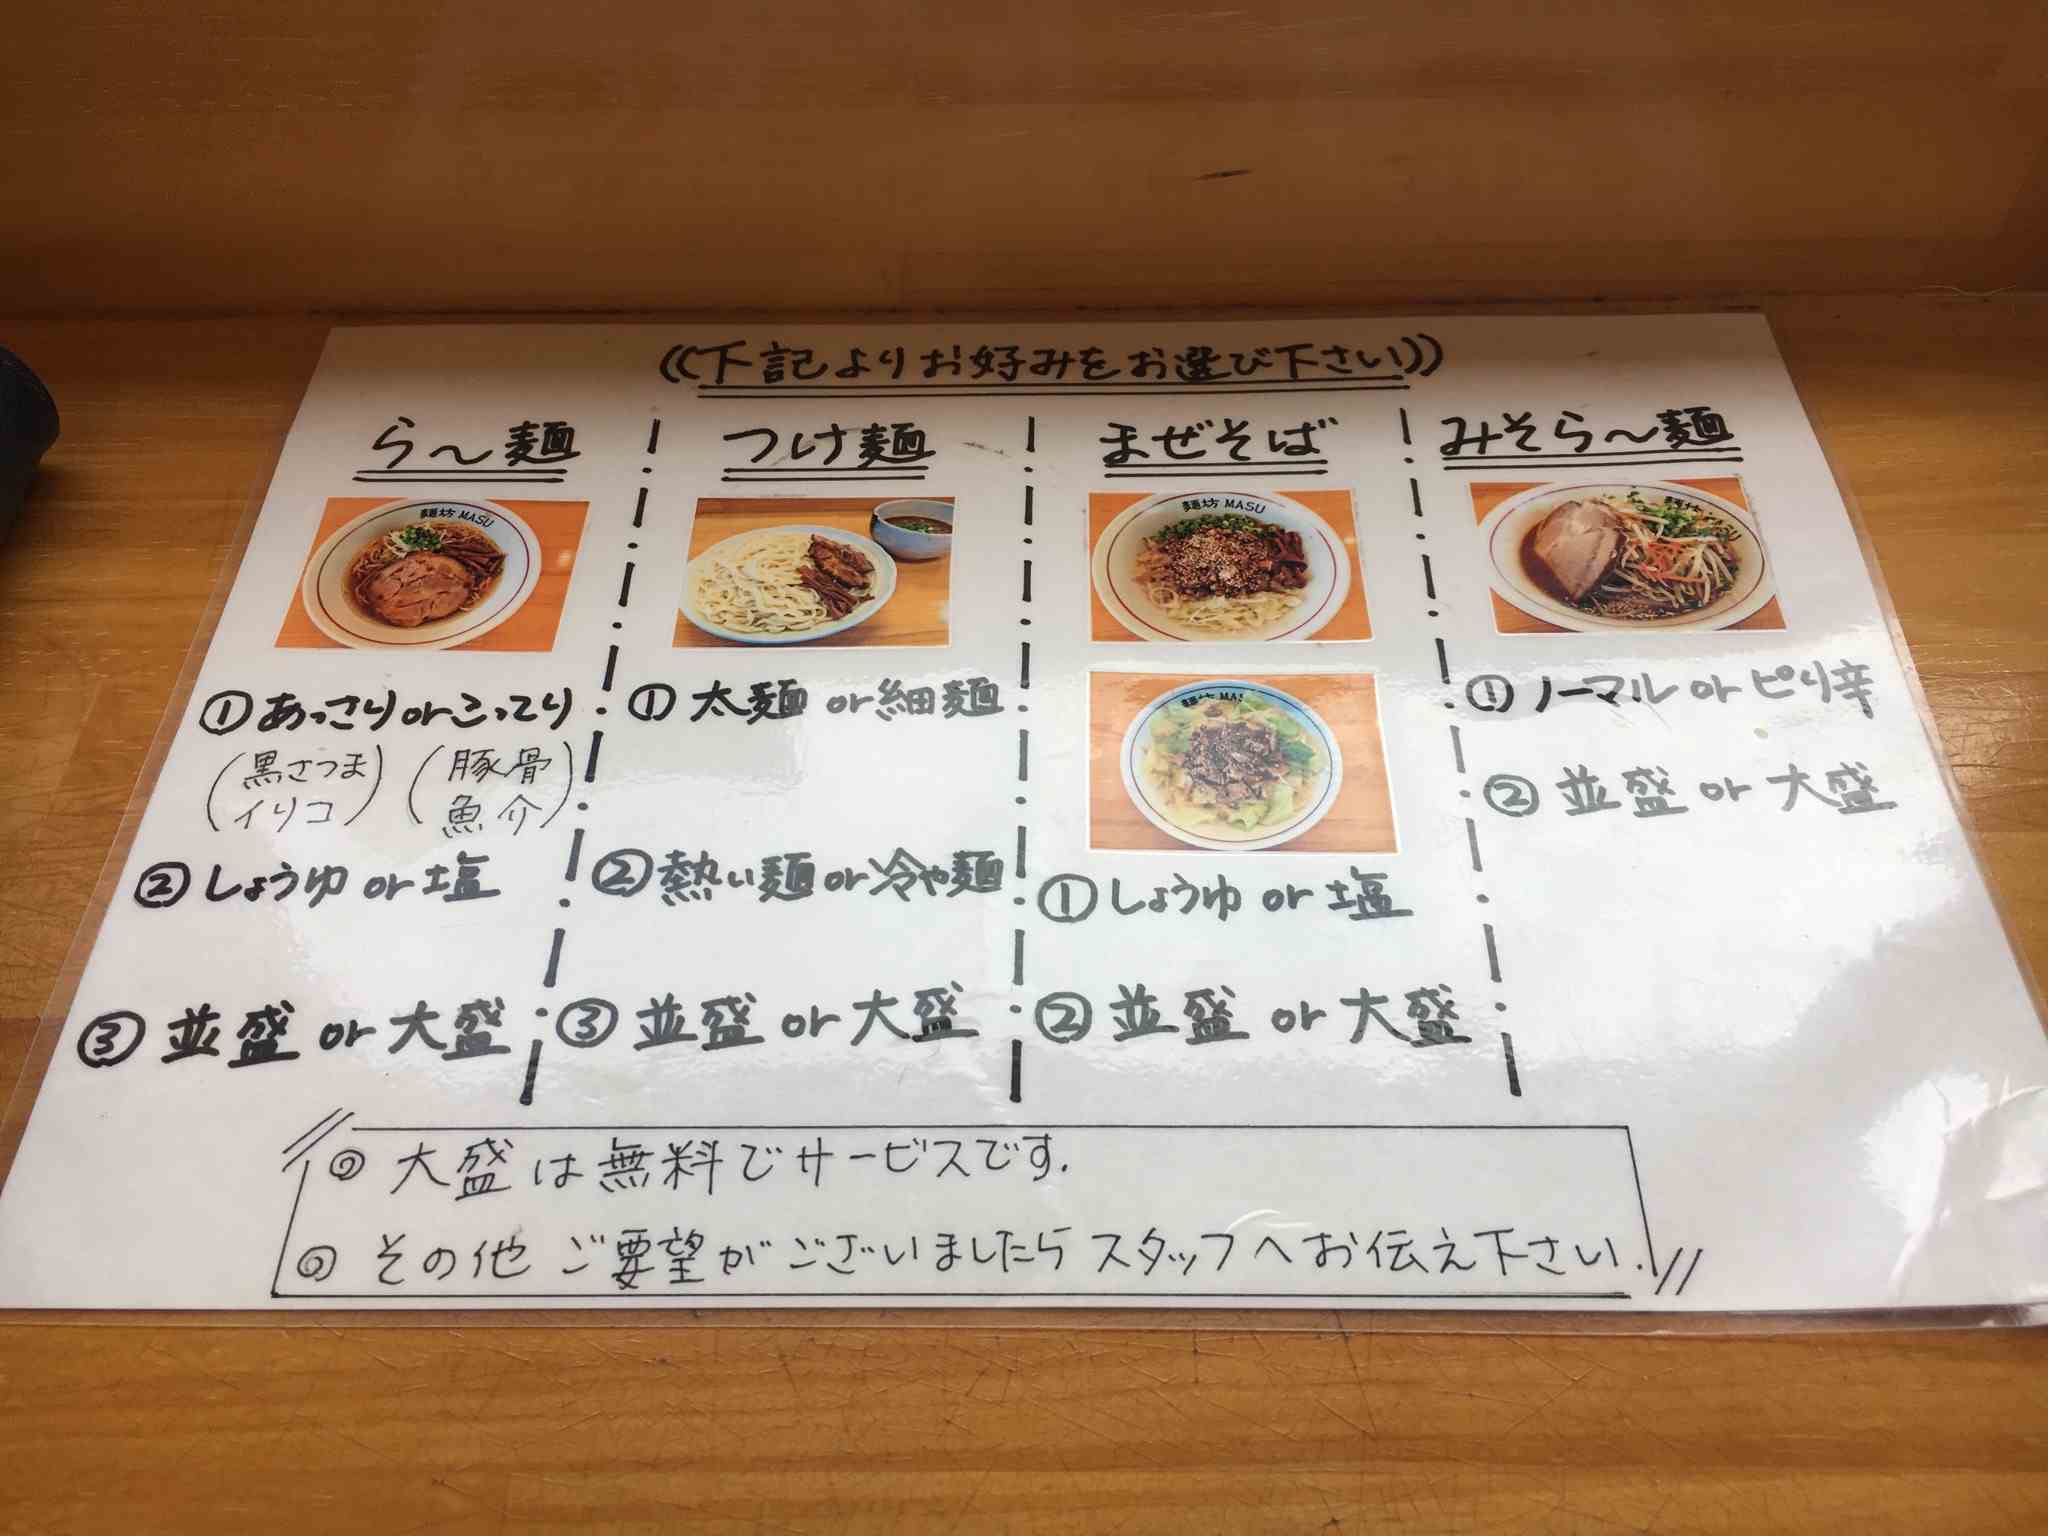 ((下記よりお好みをお選び下さい))
ら〜麺
麺坊 MASU
①あっさりorこってり
(黒さつまイリコ) (豚骨魚介)
②しょうゆ or 塩
③ 並盛 or 大盛
つけ麺
① 太麺 or 細麺
②熱い麺 or 冷や麺
③ 並盛 or 大盛
まぜそば
麺坊 MASU
麺坊 MA
①しょうゆ or 塩
② 並盛 or 大盛
みそら〜麺
麺坊 MASU
① ノーマル or ピリ辛
② 並盛 or 大盛
◎ 大盛は無料でサービスです.
◎ その他 ご要望がございましたら スタッフへお伝え下さい.